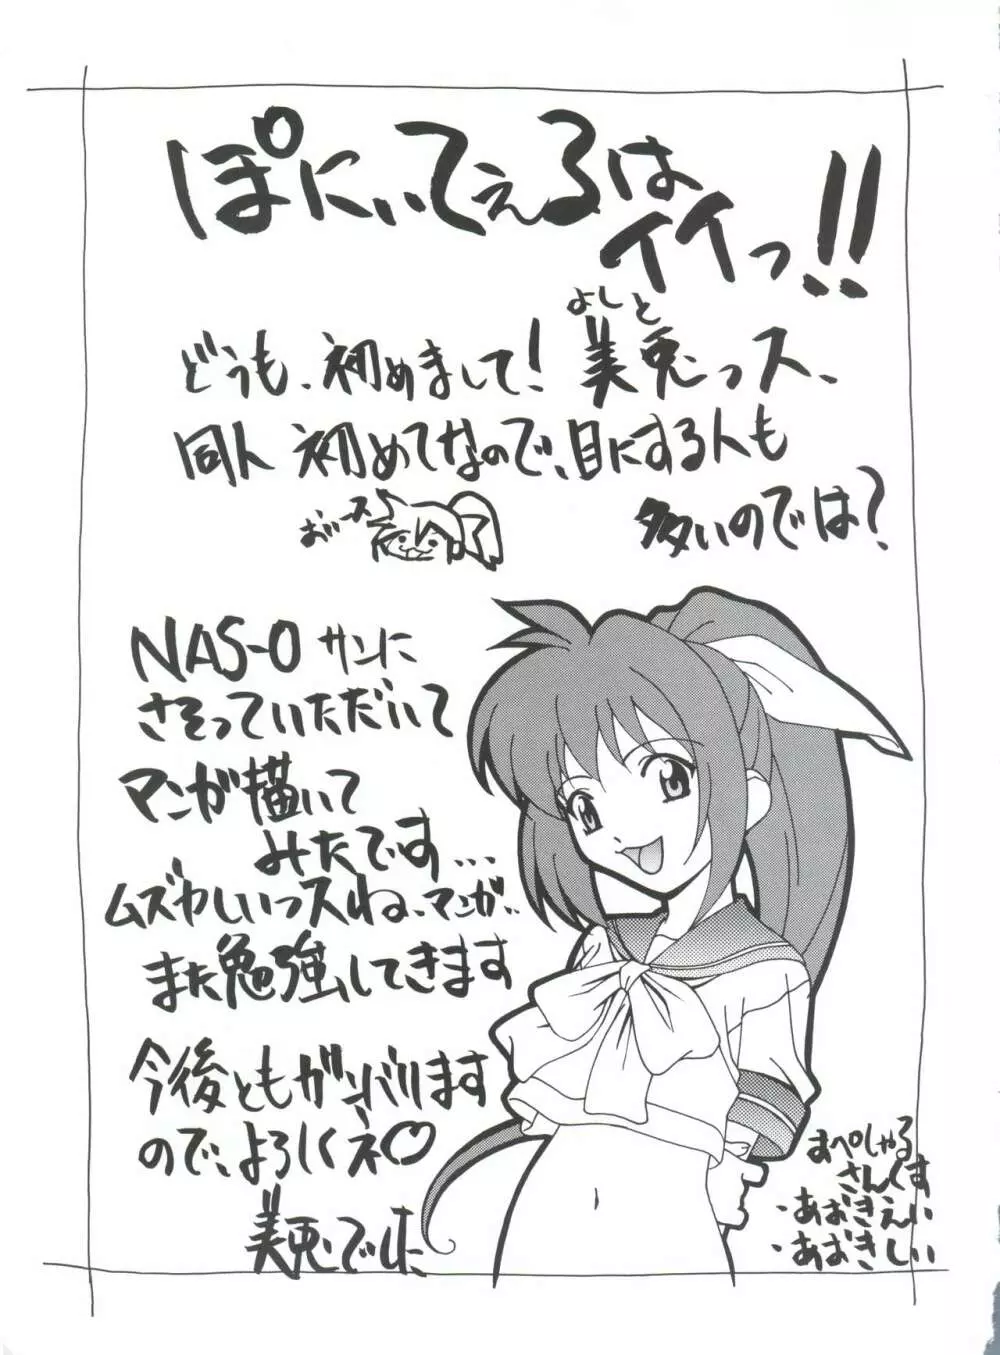 ぽにぃてぇるは
イイっ!!
よしと
どうも、初めまして!美兎っス、
同人初めてなので、目にする人も
多いのでは?
おぃース
NAS-O サンに
さそっていただいて
マンガ描いて
みたです…
ムズかしいっスね、マンガ..
また勉強してきます
今後ともガンバります
ので、よろしくネ♡
美兎でした
すぺしゃる
さんくす
・あおきえい
・あおきしい